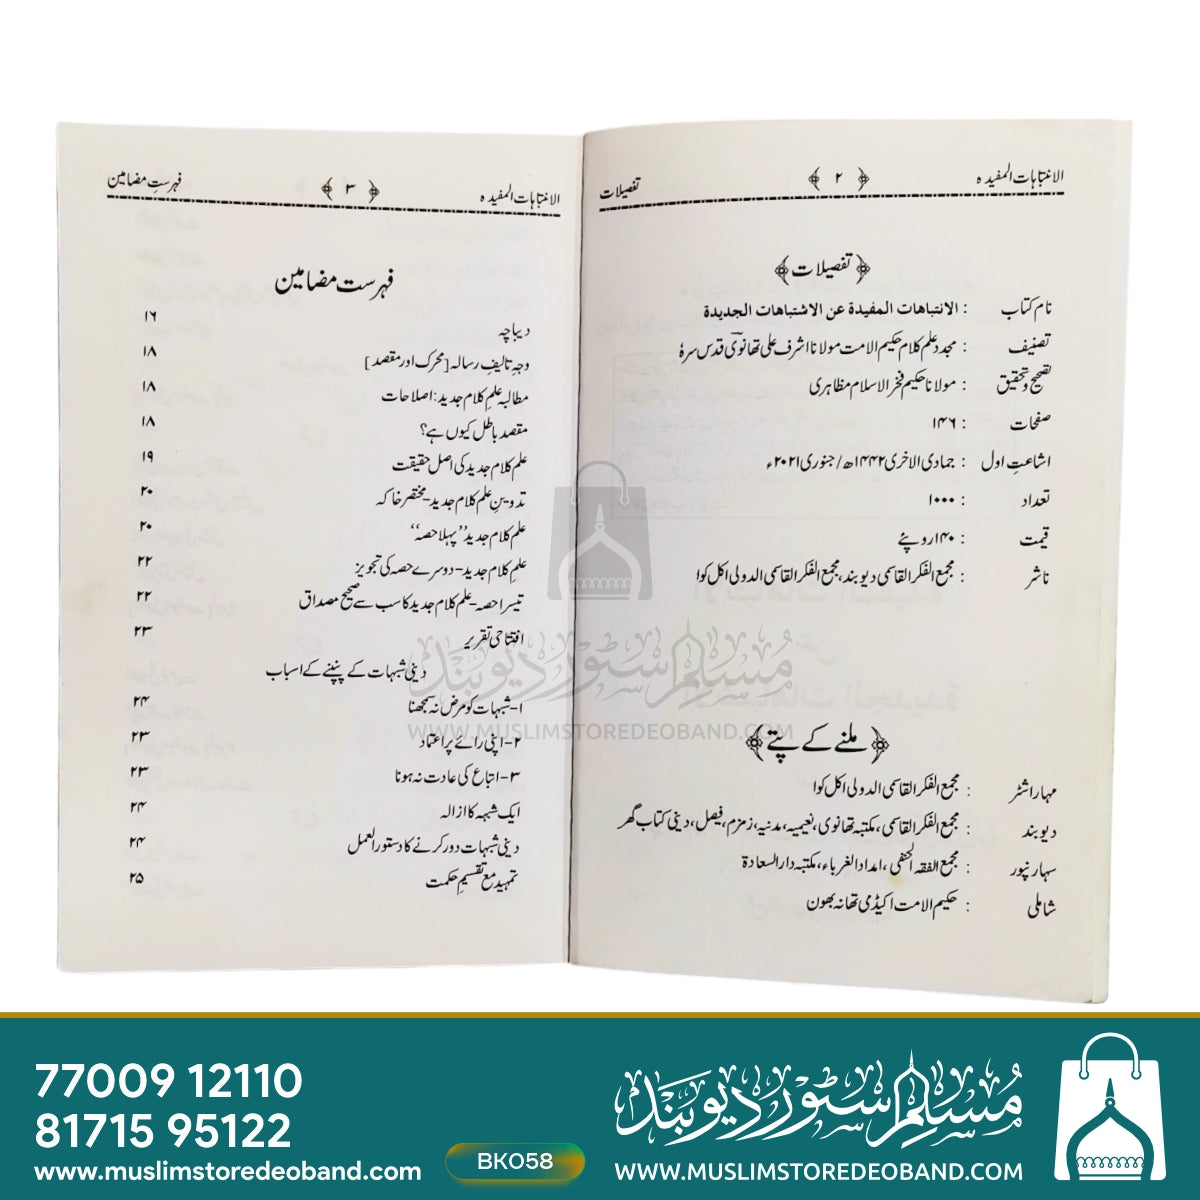 الانتباہات المفیدہ ﴿ ۲ ﴾ تفصیلات
﴿ تفصیلات ﴾
نام کتاب : الانتباهات المفيدة عن الاشتباهات الجديدة
تصنیف : مجدد علم کلام حکیم الامت مولانا اشرف علی تھانویؒ قدس سرہٗ
تصحیح و تحقیق : مولانا حکیم فخر الاسلام مظاہری
صفحات : ۱۴۶
اشاعتِ اول : جمادی الاخریٰ ۱۴۴۲ھ/جنوری ۲۰۲۱ء
تعداد : ۱۰۰۰
قیمت : ۱۴۰ روپئے
ناشر : مجمع الفکر القاسمی دیوبند، مجمع الفکر القاسمی الدولی اکل کوا
﴿ ملنے کے پتے ﴾
مہاراشٹر : مجمع الفکر القاسمی الدولی اکل کوا
دیوبند : مجمع الفکر القاسمی، مکتبہ تھانوی، نعیمیہ، مدنیہ، زمزم، فیصل، دینی کتاب گھر
سہارنپور : مجمع الفقہ الحنفی، امداد الغرباء، مکتبہ دار السعادۃ
شاملی : حکیم الامت اکیڈمی تھانہ بھون
الانتباہات المفیدہ ﴿ ۳ ﴾ فہرست مضامین
فہرست مضامین
دیباچہ ۱۶
وجہِ تالیفِ رسالہ [محرک اور مقصد] ۱۸
مطالبہ علمِ کلام جدید: اصلاحات ۱۸
مقصد باطل کیوں ہے؟ ۱۸
علم کلام جدید کی اصل حقیقت ۱۹
تدوینِ علم کلام جدید-مختصر خاکہ ۲۰
علم کلام جدید ”پہلا حصہ“ ۲۰
علمِ کلام جدید-دوسرے حصہ کی تجویز ۲۲
تیسرا حصہ-علم کلام جدید کا سب سے صحیح مصداق ۲۲
افتتاحی تقریر ۲۳
دینی شبہات کے پنپنے کے اسباب
۱-شبہات کو مرض نہ سمجھنا ۲۴
۲-اپنی رائے پر اعتماد ۲۳
۳-اتباع کی عادت نہ ہونا ۲۳
ایک شبہ کا ازالہ ۲۴
دینی شبہات دور کرنے کا دستور العمل ۲۴
تمہید مع تقسیمِ حکمت ۲۵
مسلم سٹور دیوبند
WWW.MUSLIMSTOREDEOBAND.COM
77009 12110
81715 95122
www.muslimstoredeoband.com
BK058
مسلم سٹور دیوبند
WWW.MUSLIMSTOREDEOBAND.COM